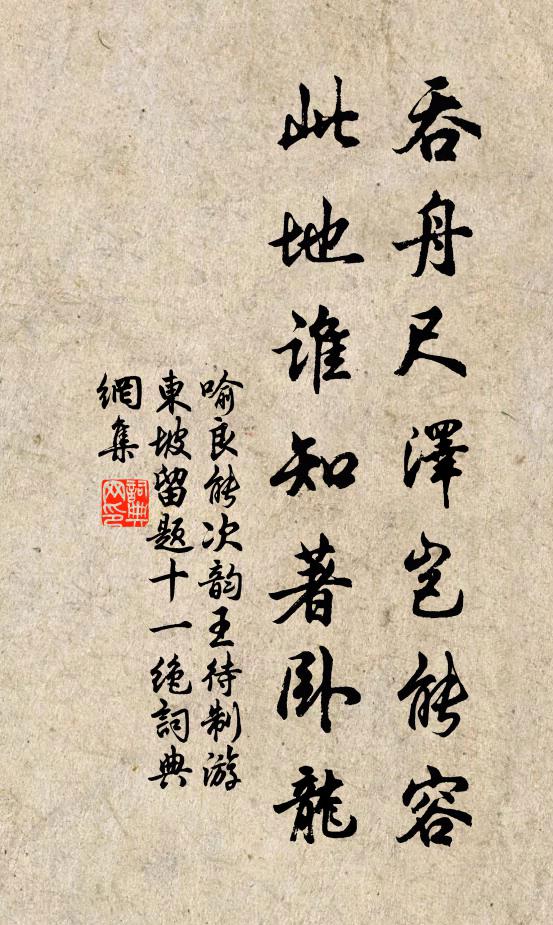 吞舟尺澤豈能容
此地誰知著臥龍
喻良能次韵王待制游
東坡留題十一绝詞典
網集
詞典
网印